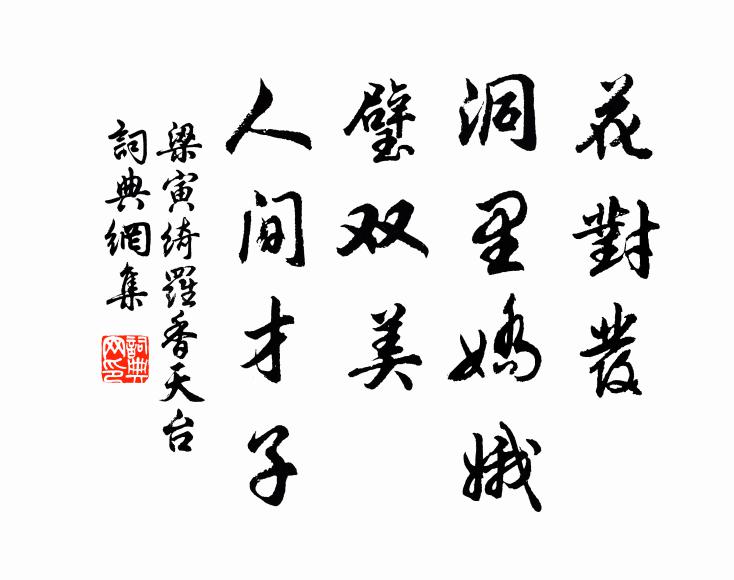 花對發
洞里嬌娥
璧双美
人间才子
梁寅绮羅香天台
詞典網集
詞典网印